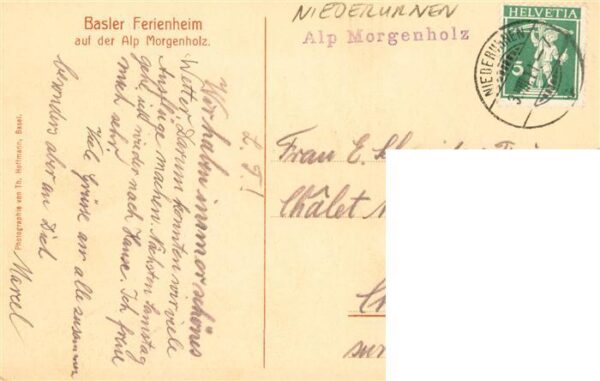 Basler Ferienheim
auf der Alp Morgenholz.
NIEDERURNEN
Alp Morgenholz
HELVETIA
5
NIEDERURNEN
L. T.!
Wir haben immer schönes
Wetter. Darum konnten wir viele
Ausflüge machen. Nächsten Samstag
geht es wieder nach Hause. Ich freue
mich sehr!
Viele Grüsse an alle zusammen
besonders aber an Dich
Marcel
Photographie von Th. Hoffmann, Basel.
Frau E.
Châlet